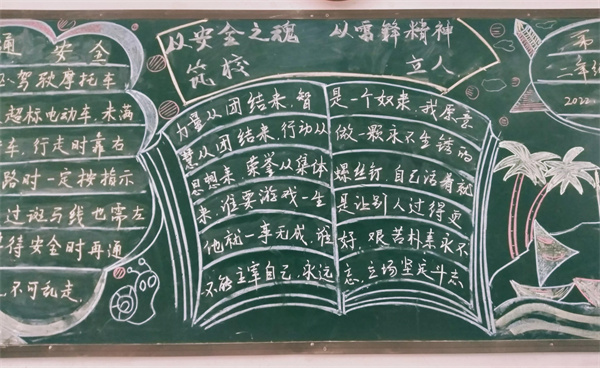 通 安 全
不驾驶摩托车
超标电动车.未满
车.行走时靠右
路时一定按指示
过斑马线也需左
待安全时再通
不可乱走.
从安全之魂 从雷锋精神
筑校 立人
力量从团结来.智
慧从团结来.行动从
思想来.荣誉从集体
来.谁要游戏一生
他就一事无成.谁
不能主宰自己.永远
是一个奴隶.我愿意
做一颗永不生锈的
螺丝钉.自己活着就
是让别人过得更
好.艰苦朴素永不
忘.立场坚定斗志
第
二年级
2022